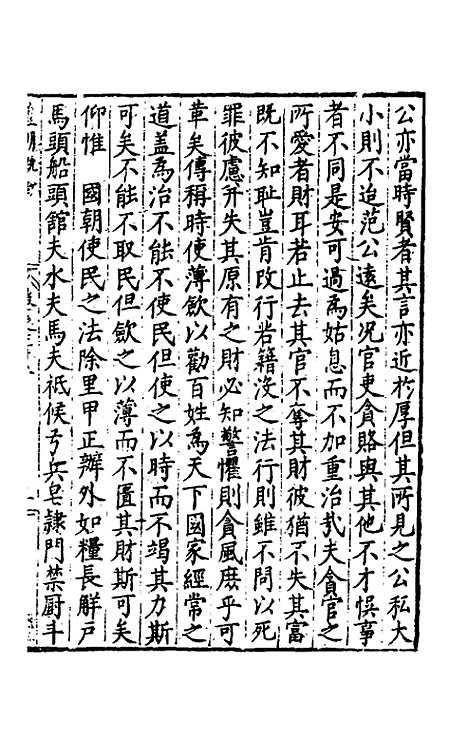 公亦當時賢者其言亦近於厚但其所見之公私大
小則不迨范公遠矣况官吏貪賂與其他不才悞事
者不同是安可過爲姑息而不加重治哉夫貪官之
所愛者財耳若止去其官不奪其財彼猶不失其富
既不知恥豈肯改行若籍沒之法行則雖不問以死
罪彼慮并失其原有之財必知警懼則貪風庶乎可
革矣傳稱時使薄歛以勸百姓爲天下國家經常之
道盖爲治不能不使民但使之以時而不竭其力斯
可矣不能不取民但歛之以薄而不匱其財斯可矣
仰惟　國朝使民之法除里甲正辦外如糧長觧户
馬頭船頭館夫水夫馬夫祗候弓兵皂隷門禁厨斗